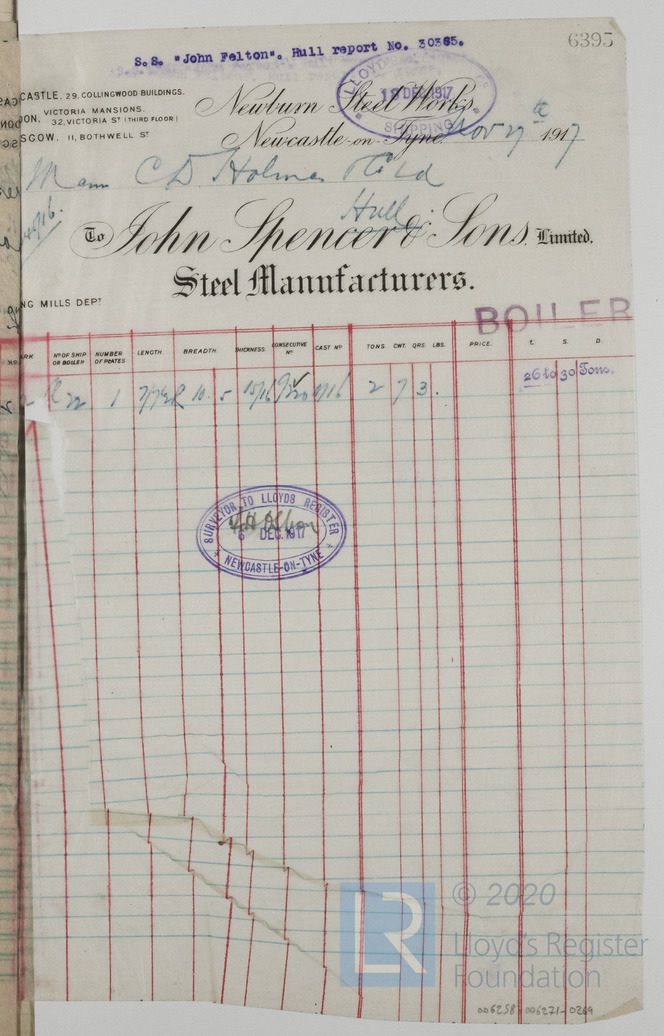 S.S. "John Felton". Hull report No. 30365.
6395
CASTLE, 29, COLLINGWOOD BUILDINGS.
VICTORIA MANSIONS.
ON, 32, VICTORIA ST (THIRD FLOOR)
SGOW, 11, BOTHWELL ST
LLOYD'S
18 DEC 1917
SHIPPING
Newburn Steel Works
Newcastle-on-Tyne. Nov 27th 1917
C D Holmes & Co Ld
Hull
To John Spencer & Sons, Limited.
Steel Manufacturers.
NG MILLS DEPT
BOILER
RK No OF SHIP OR BOILER NUMBER OF PLATES LENGTH BREADTH THICKNESS CONSECUTIVE No CAST No TONS. CWT. QRS. LBS. PRICE. £. S. D.
26 to 30 Tons.
22 1 10. 5 15/16 2 7 3.
SURVEYOR TO LLOYDS REGISTER
6 DEC. 1917
NEWCASTLE-ON-TYNE
LR
© 2020
Lloyd's Register
Foundation
006258-006271-0269